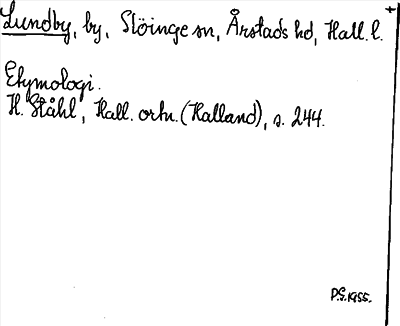 Lundby, by, Slöinge sn, Årstads hd, Hall. l.
Etymologi.
H. Ståhl, Hall. ortn. (Halland), s. 244.
P.G. 1955.